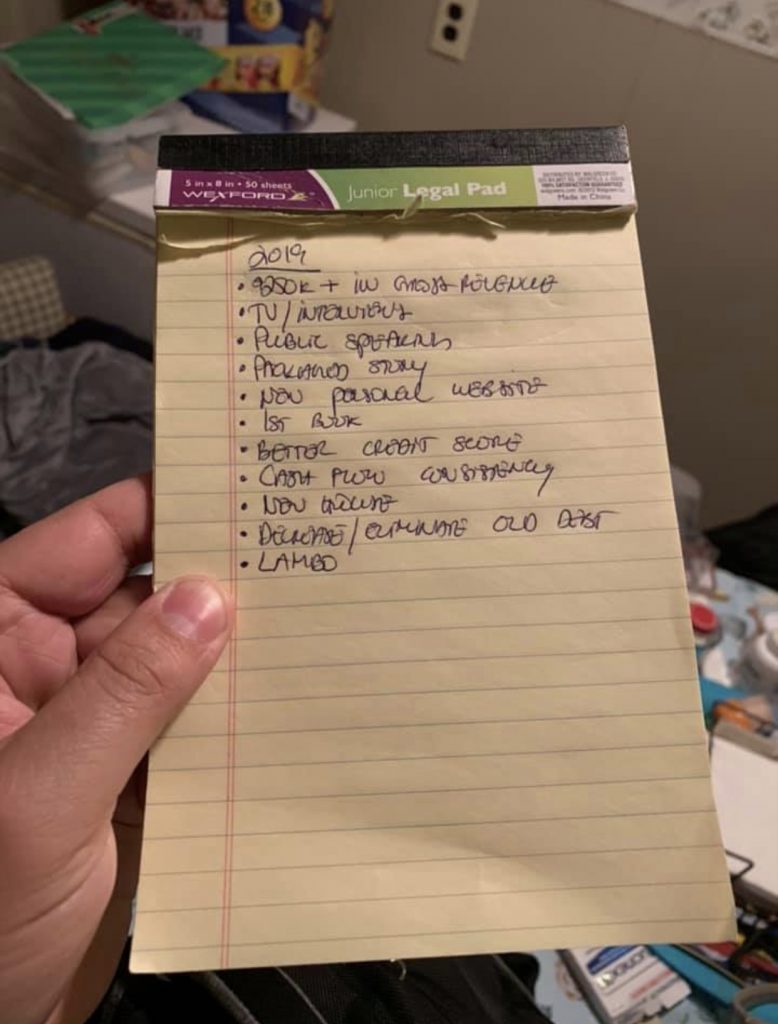 5 in x 8 in • 50 sheets
WEXFORD
Junior Legal Pad
100% SATISFACTION GUARANTEED
Made in China
2019
• $250K + IN GROSS REVENUE
• TV/INTERVIEWS
• PUBLIC SPEAKING
• PACKAGED STORY
• NEW PERSONAL WEBSITE
• 1ST BOOK
• BETTER CREDIT SCORE
• CASH FLOW CONSISTENCY
• NEW HOUSE
• DECREASE/ELIMINATE OLD DEBT
• LAMBO